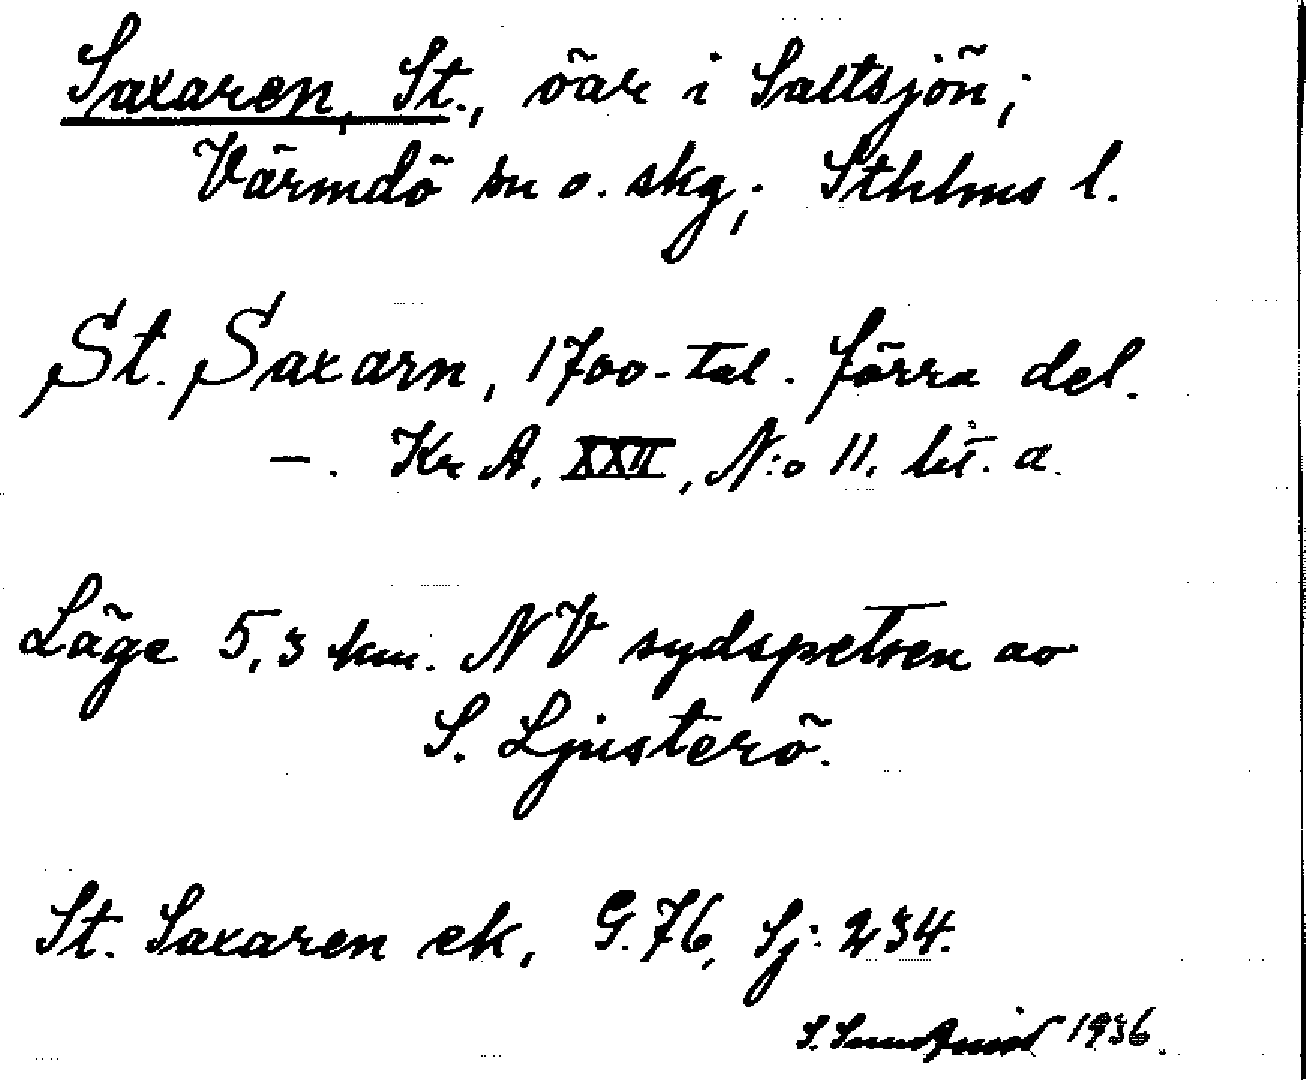 Saxaren, St., öar i Saltsjön;
Värmdö sn o. skg; Sthlms l.
St. Saxarn, 1700-tal. förra del.
–. Kr A. XXII, N:o 11. lit. a.
Läge 5,3 km. NV sydspetsen av
S. Ljusterö.
St. Saxaren ek, G. 76, Sj: 234.
S. Sundquist 1936.